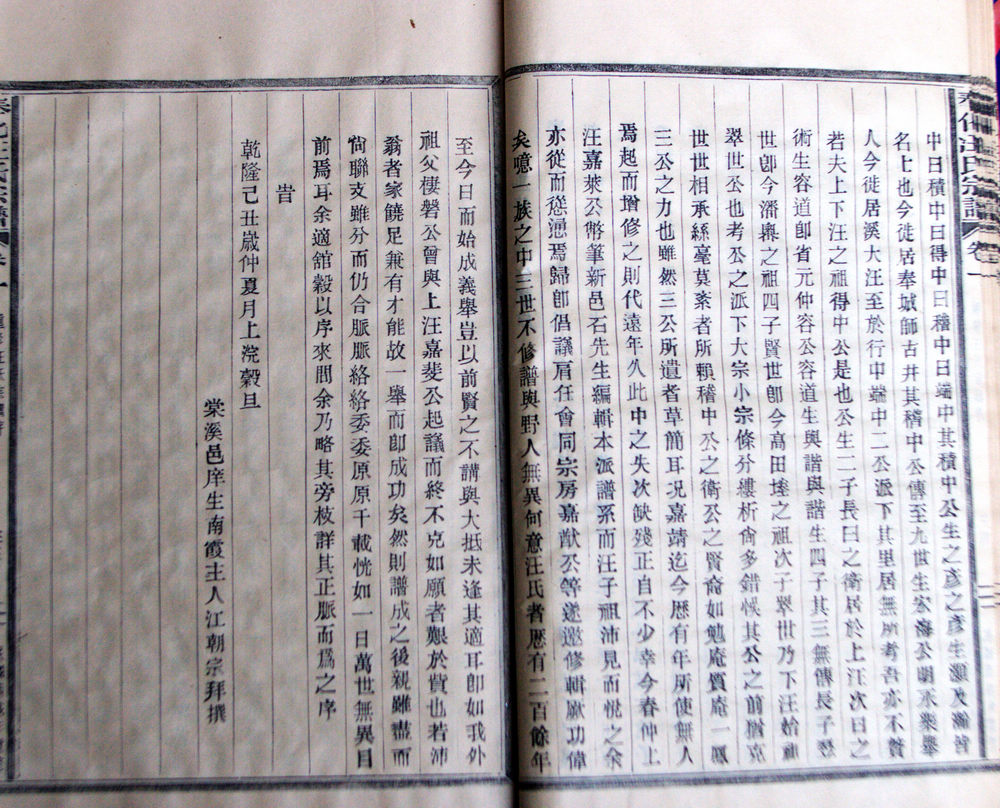 汪氏宗譜 卷一
中曰積中曰得中曰稽中曰端中其積中公生之彥之彥生灝及瀚皆
名上也今徙居奉城師古井其稽中公傳至九世生宏海公明永樂舉
人今徙居溪大汪至於行中端中二公派下其里居無所考吾亦不贅
若夫上下汪之祖得中公是也公生二子長曰之衛居於上汪次曰之
術生容道卽省元仲容公容道生與諧與諧生四子其三無傳長子
世卽今潘㠘之祖四子賢世卽今高田塍之祖次子翠世乃下汪始祖
翠世公也考公之派下大宗小宗條分縷析尙多錯悞其公之前猶克
世世相承絲毫莫紊者所賴稽中公之衛公之賢裔如勉庵質庵一鳳
三公之力也雖然三公所遺者草簡耳况嘉靖迄今歷有年所使無人
焉起而增修之則代遠年久此中之失次缺殘正自不少幸今春仲上
汪嘉萊公幣筆新邑石先生編輯本派譜系而汪子祖沛見而悅之余
亦從而慫慂焉歸卽倡議肩任會同宗房嘉猷公等遂邀修輯厥功偉
矣噫一族之中三世不修譜與野人無異何意汪氏者歷有二百餘年
至今日而始成義舉豈以前賢之不講與大抵未逢其適耳卽如我外
祖父棲磐公曾與上汪嘉斐公起議而終不克如願者艱於貲也若沛
翁者家饒足兼有才能故一舉而卽成功矣然則譜成之後親雖盡而
尙聯支雖分而仍合脈脈絡絡委委原原千載恍如一日萬世無異目
前焉耳余適舘穀以序來問余乃略其旁枝詳其正脈而爲之序
旹
乾隆己丑歲仲夏月上浣穀旦
棠溪邑庠生南霞主人江朝宗拜撰
奉化汪氏宗譜 卷一